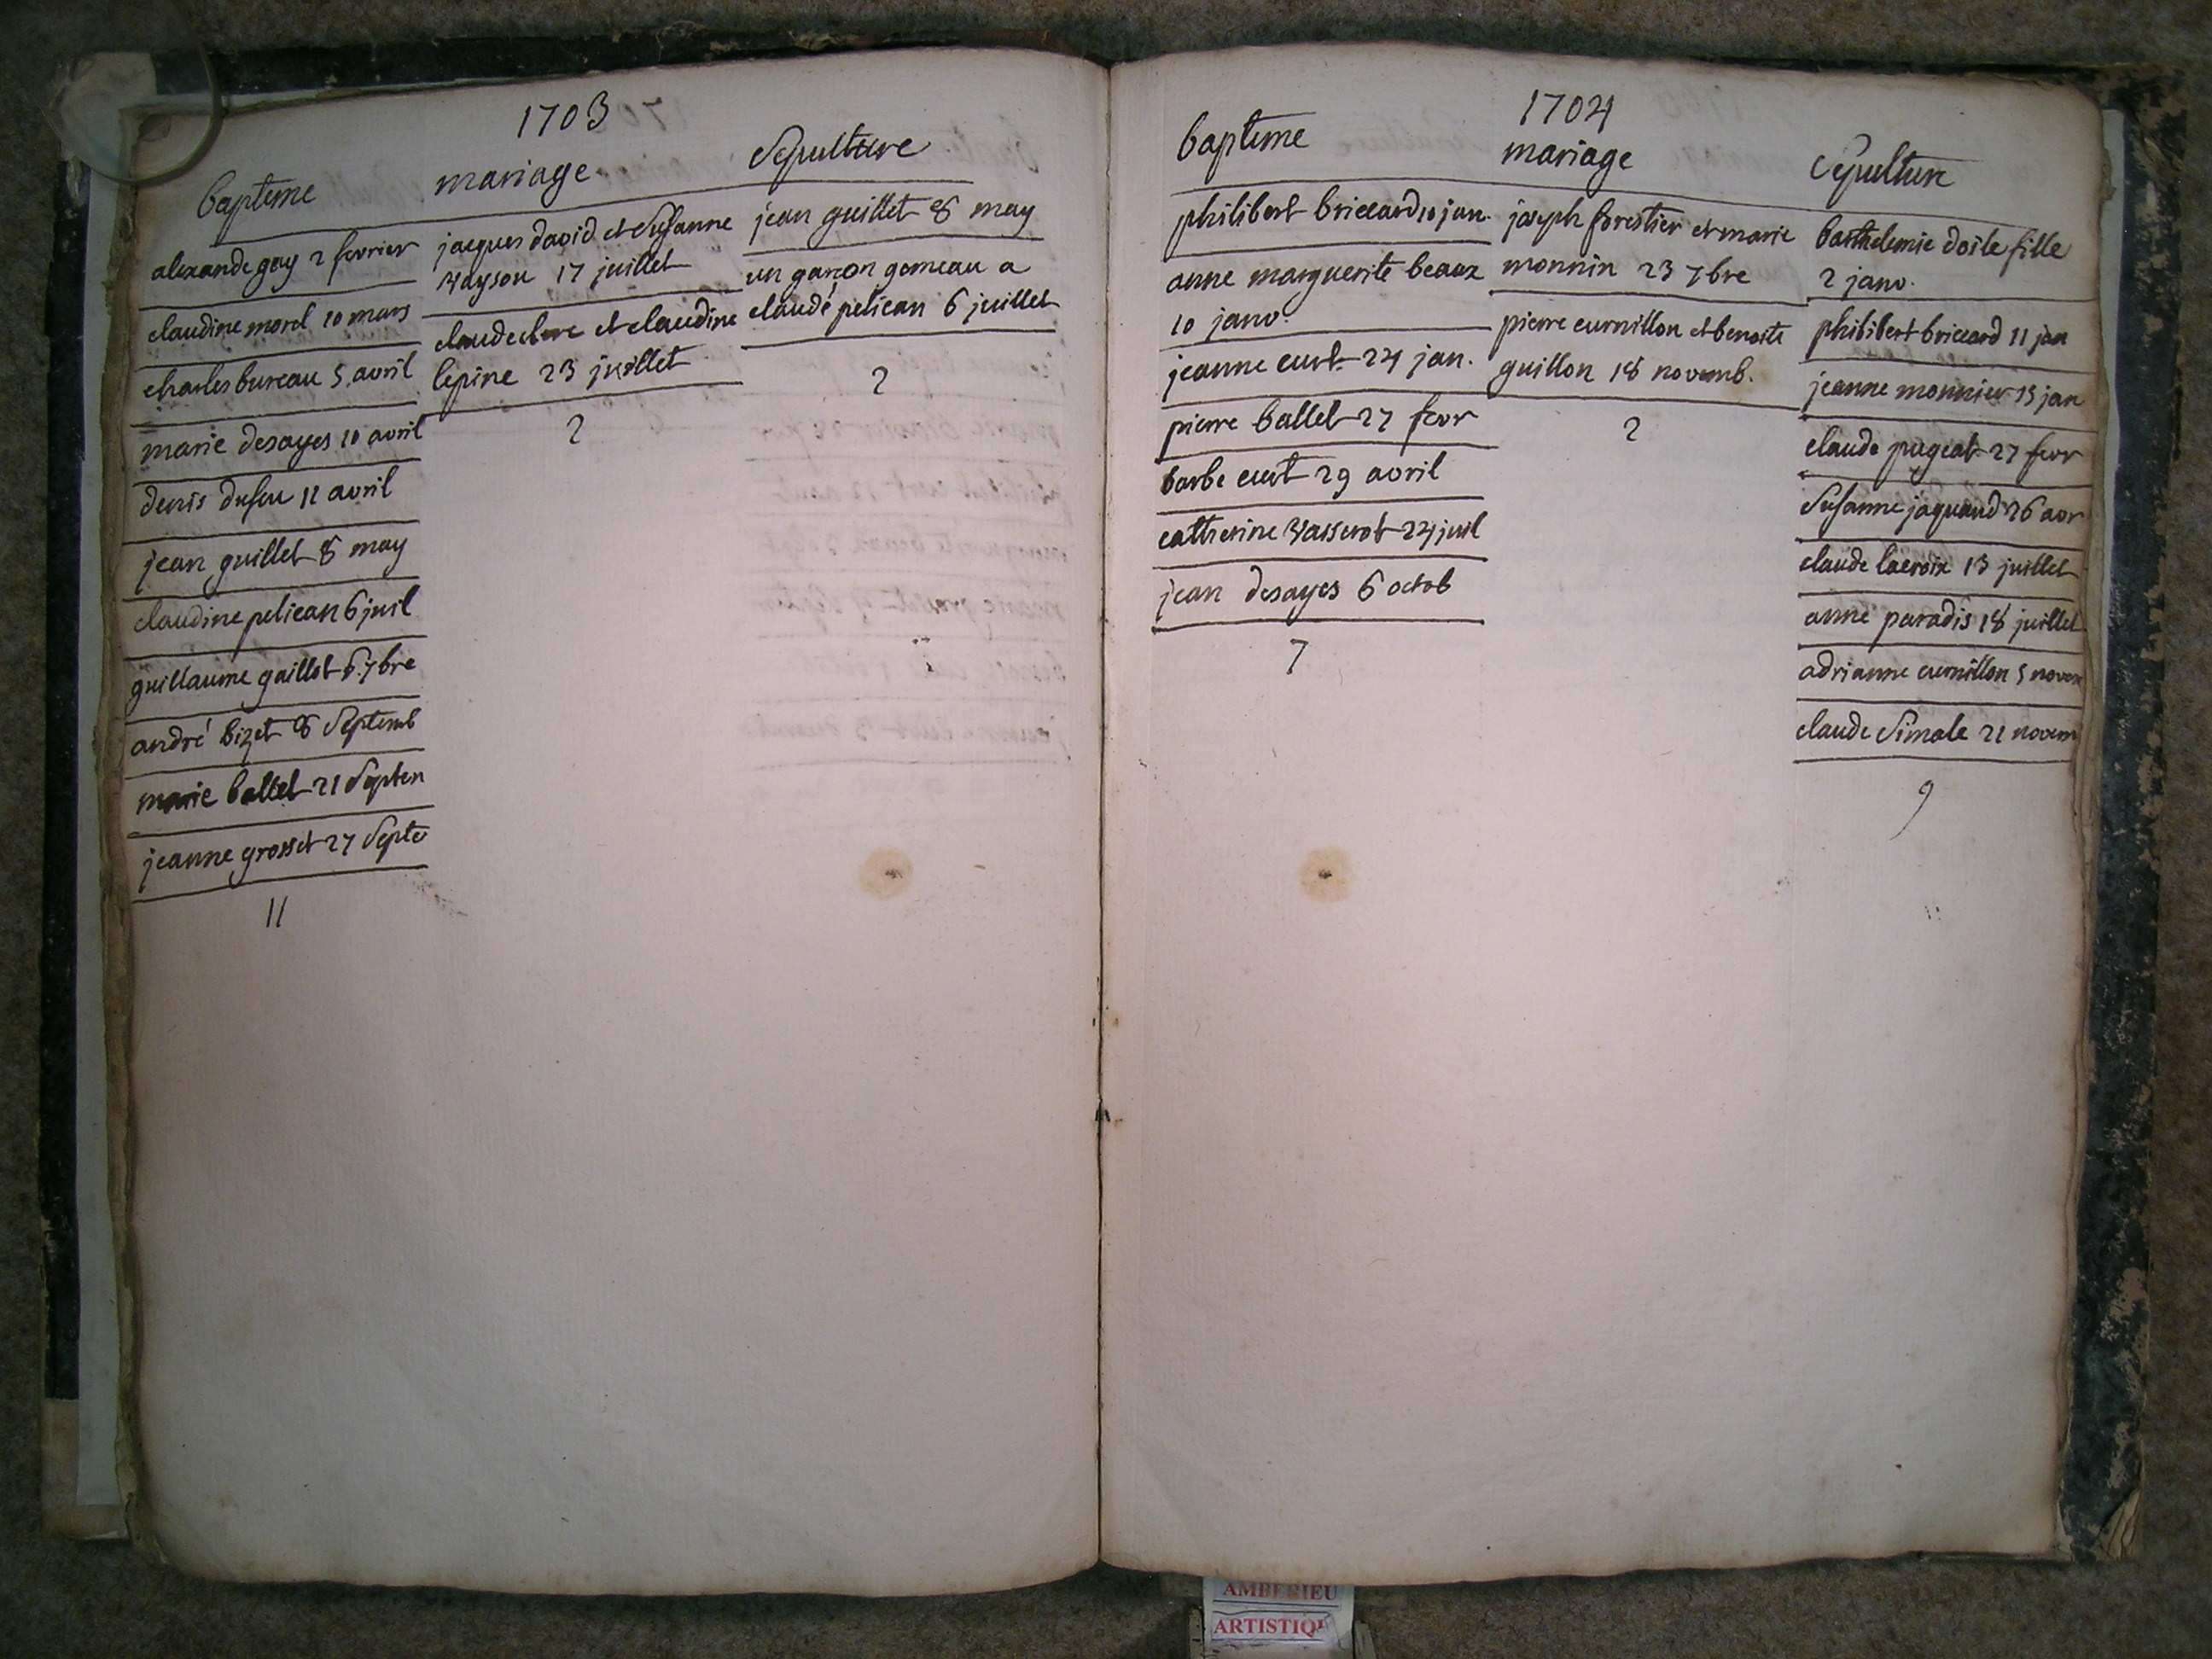 1703
bapteme
alexandre gay 2 fevrier
claudine morel 10 mars
charles bureau 5 avril
marie desayes 10 avril
denis dufeu 11 avril
jean guillet 8 may
claudine pelican 6 juil
guillaume gaillot 6 7bre
andré bizet 8 Septemb
marie ballet 21 Septen
jeanne grosset 27 Septe
11
mariage
jacques david et Susanne
17 juillet
et claudine
lepine 23 juillet
2
Sepulture
jean guillet 8 may
un garcon gemeau a
claude pelican 6 juillet
2
1704
bapteme
philibert briccard 10 jan.
anne marguerite beaux
10 janv.
jeanne curt 24 jan.
pierre ballet 27 fevr
barbe curt 29 avril
catherine vasserot 24 juil
jean desayes 6 octob
7
mariage
joseph forestier et marie
monnin 23 7bre
pierre curnillon et benoite
guillon 18 novemb.
2
Sepulture
barthelemie doile fille
2 janv.
philibert briccard 11 jan
jeanne monnier 15 jan
claude pugeat 27 fevr
Susanne jaquand 26 avr
claude lacroix 13 juillet
anne paradis 18 juillet
adrianne curnillon 5 novem
claude Simole 21 novem
9
AMBERIEU
ARTISTIQ